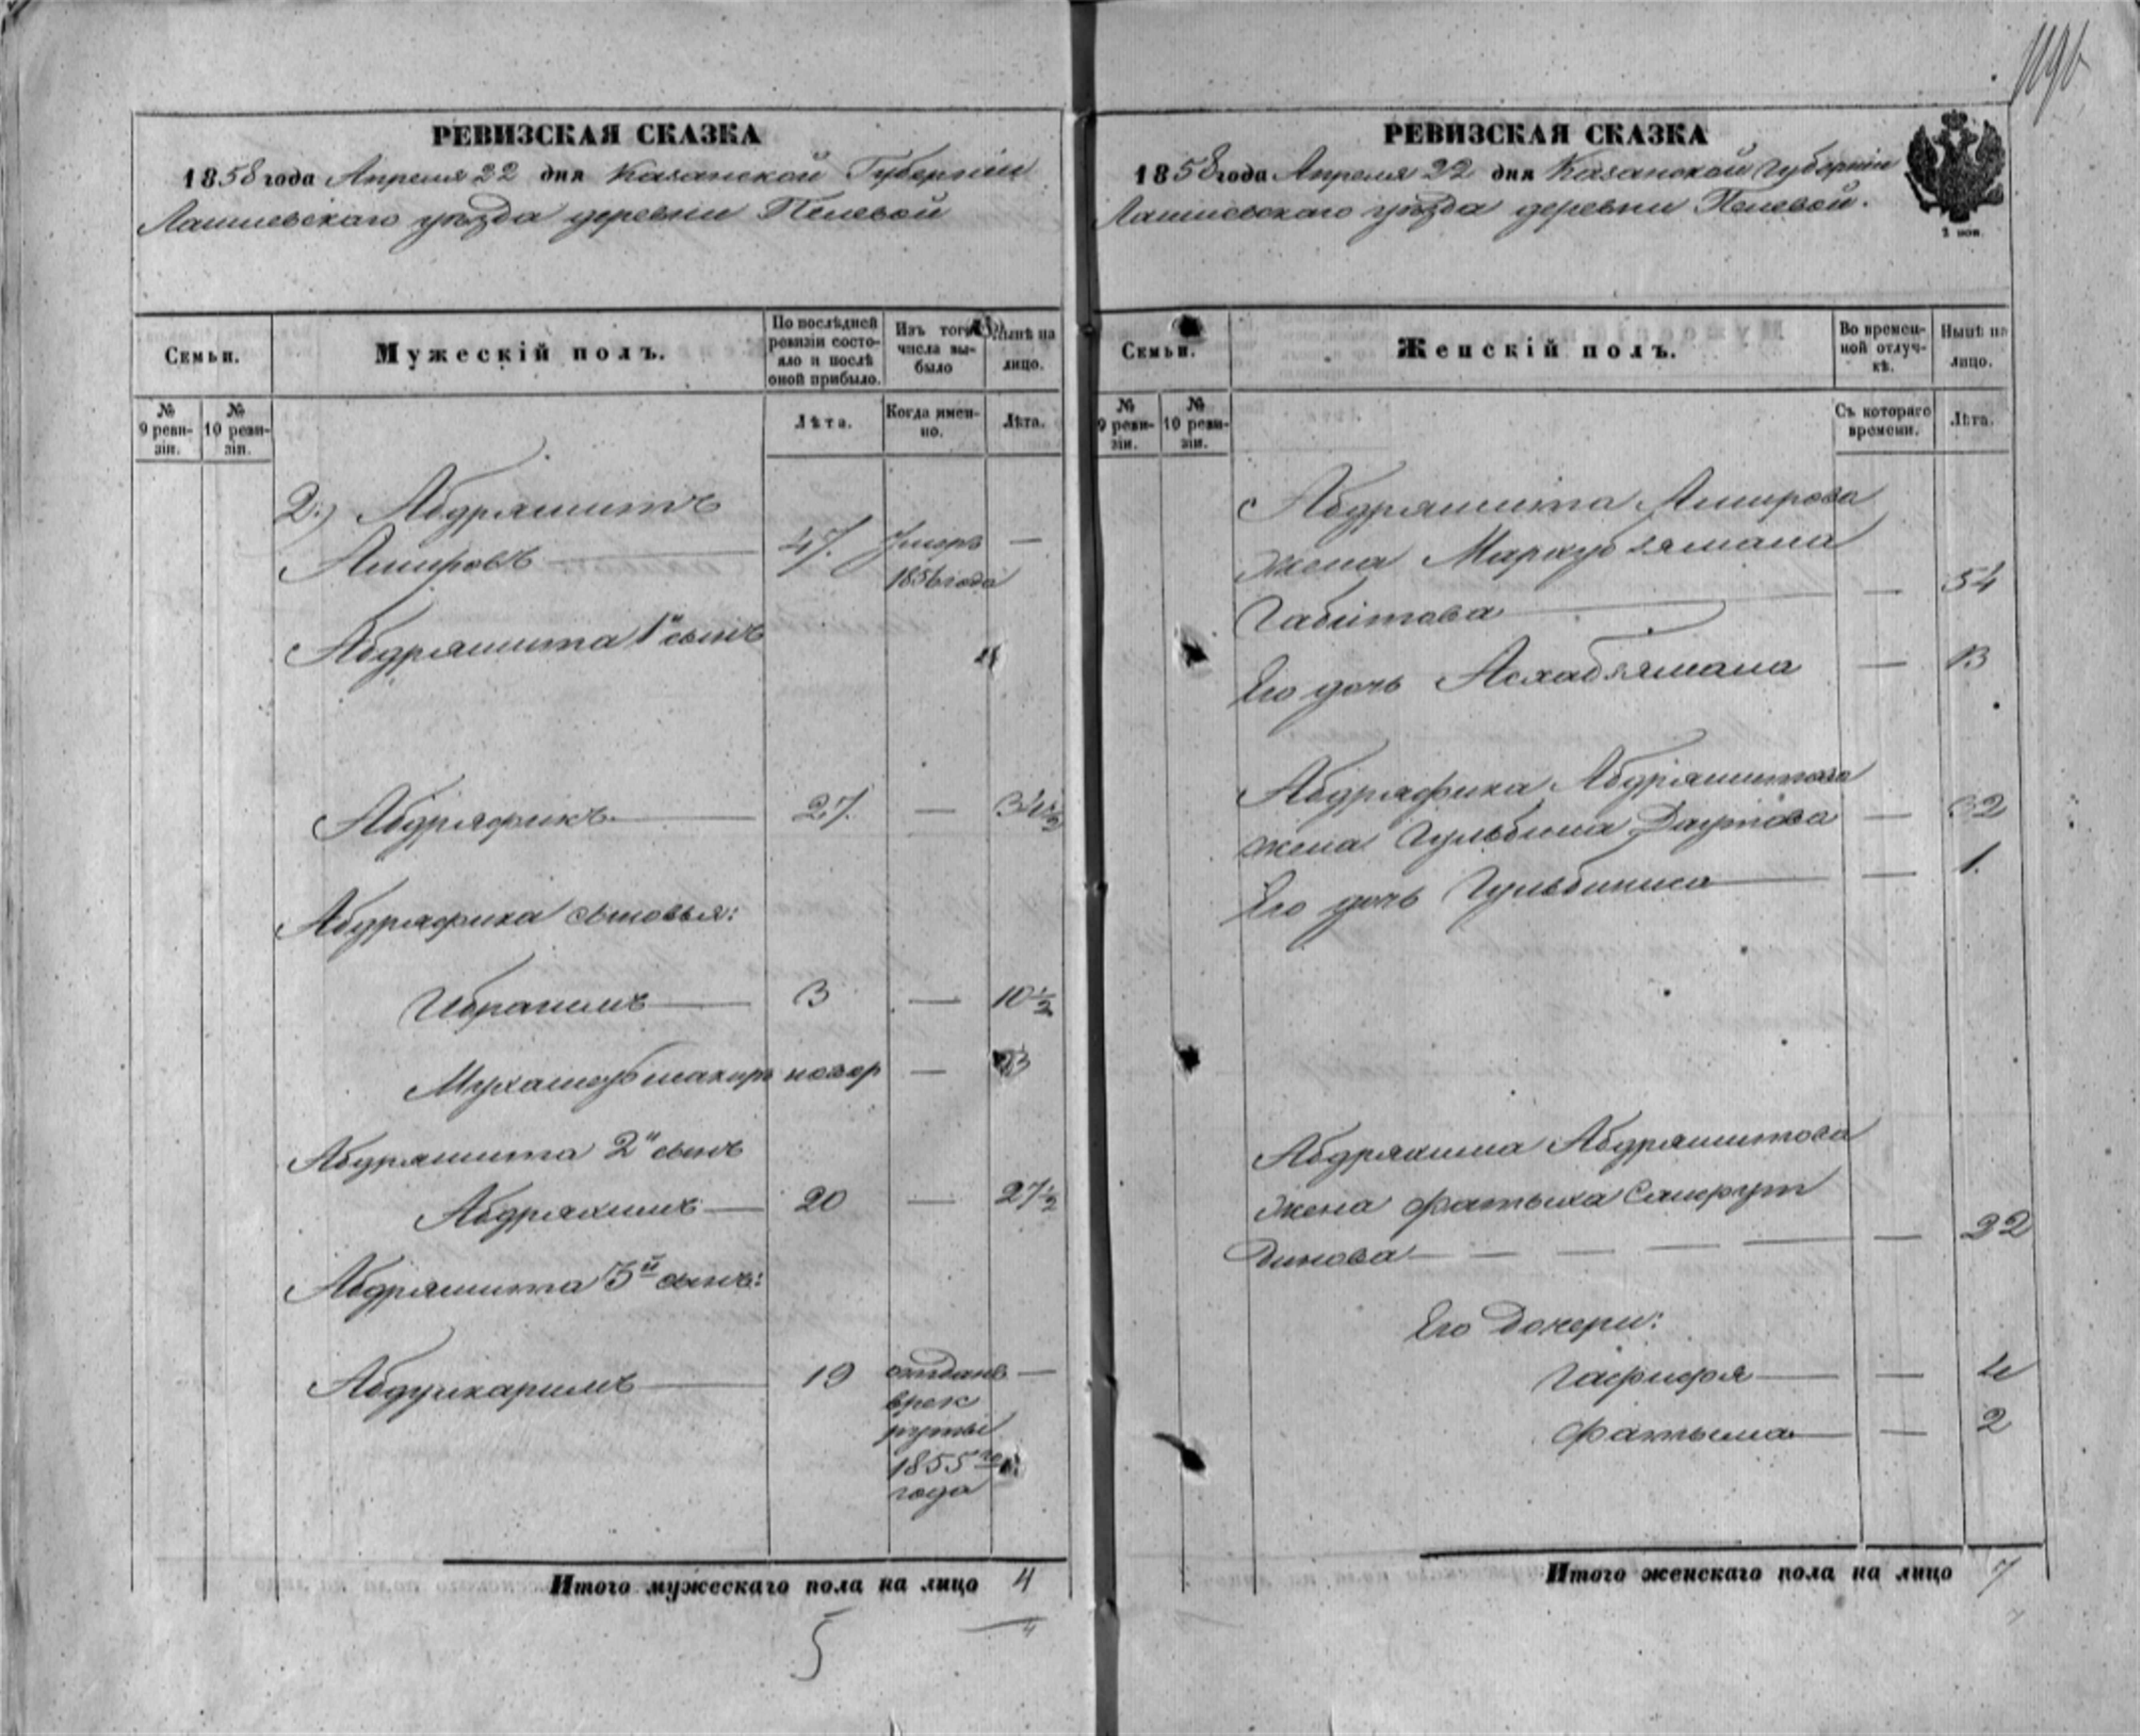 119б
РЕВИЗСКАЯ СКАЗКА
1858 года Апреля 22 дня Казанской Губернии
Лаишевскаго уѣзда деревни Пелевой
Семьи.
Мужескій полъ.
По послѣдней ревизіи состояло и послѣ оной прибыло.
Изъ того числа выбыло
Нынѣ на лицо.
№ 9 ревизіи.
№ 10 ревизіи.
Лѣта.
Когда именно.
Лѣта.
2.) Абдряшитъ
Амировъ — 47. Умеръ —
1856 года
Абдряшита 1й сынъ
Абдряфикъ — 27. — 34 1/2
Абдряфика сыновья:
Ибрагимъ — 3 — 10 1/2
Мухаметьшакиръ новор — 3
Абдряшита 2й сынъ
Абдряхимъ — 20 — 27 1/2
Абдряшита 3й сынъ:
Абдулкаримъ — 19 отданъ —
врек
руты
1855го
года
Итого мужескаго пола на лицо 4
5
4
РЕВИЗСКАЯ СКАЗКА
1858 года Апреля 22 дня Казанской Губерніи
Лаишевскаго уѣзда деревни Пелевой.
Семьи.
Женскій полъ.
Во временной отлучкѣ.
Нынѣ на лицо.
№ 9 ревизіи.
№ 10 ревизіи.
Съ котораго времени.
Лѣта.
Абдряшита Амирова
жена Маркубзямана
Габитова — — 54
Его дочь Асхабзямана — 13
Абдряфика Абдряшитова
жена Гульбина Даутова — 32
Его дочь Гульбиниса — — 1.
Абдряхима Абдряшитова
жена Фатыха Сайфут
динова — — — — — 22
Его дочери:
Гафифя — — 4
Фатыма — — 2
Итого женскаго пола на лицо 7